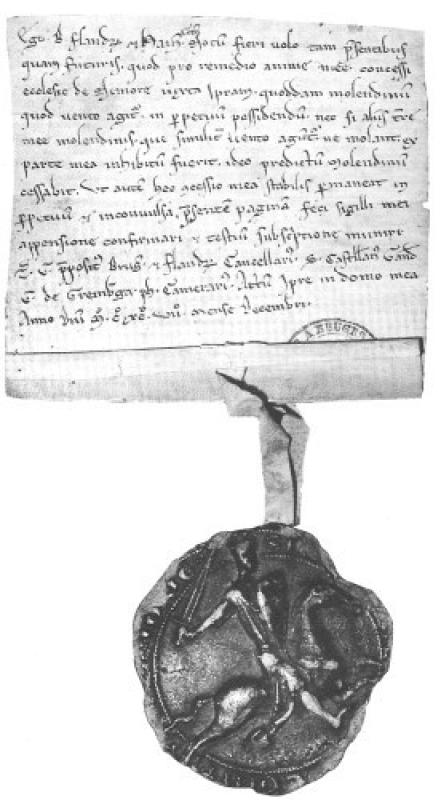 Ego B. Flandr. et Hain. Com. Notū fieri volo tam p̄sentibus
quam futuris. quod pro remedio anime mee concessi
ecclesie de Hemote iuxta Ipram. quoddam molendinū
quod vento agit᷑. in p̄petuū possidendū. nec si aliis t̄re
mee molendinis. que similit᷑ vento agūt᷑. ne molant. ex
parte mea inhibitū fuerit. ideo predictū Molendinū
cessabit. Ut autē hoc mea stabilis p̄maneat in
p̄petuū et inconvulsa. p̄sentē paginā feci sigilli mei
appensione confirmari et testiū subscptione muniri
p̄posit᷑ Brug. et Flandr. Cancellari. S. Castellan᷑ Gand.
de Grembga. ph. Camerari. Actū Ipre in domo mea
Anno Dn̄i M. C. XC. mense Decembri.